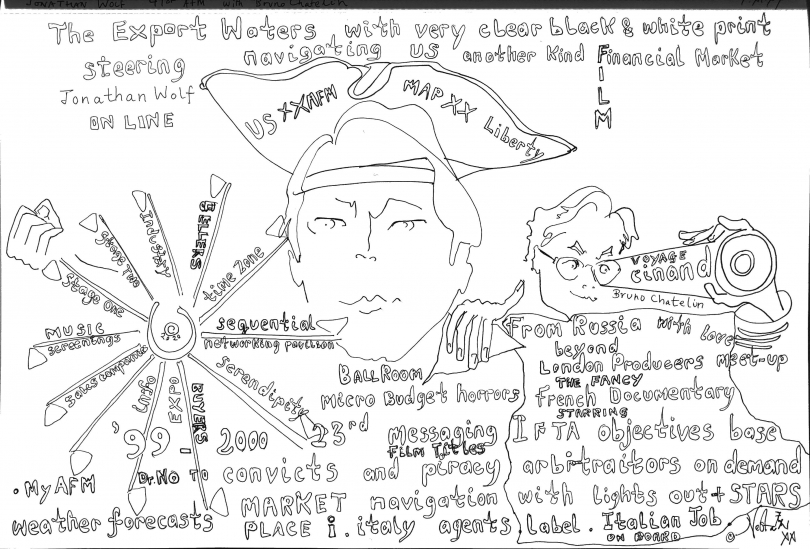 Jonathan Wolf 41st AFM with Bruno Chatelin
The Export Waters with very clear black & white print
navigating US another kind Financial Market
FILM
steering
Jonathan Wolf
ON LINE
US XXAFM MAP XX Liberty
SELLERS
Industry
Stage Two
Stage One
time zone
MUSIC
screenings
sequential
networking pavilion
Sales companies
info
EXPO
BUYERS
Serendipity
VOYAGE
cinand
Bruno Chatelin
From Russia with love
beyond
London Producers meet-up
THE FANCY
French Documentary
STARRING
BALLROOM
Micro Budget horrors
'99 - 2000 23rd Messaging IFTA objectives base
Film Titles
. My AFM Dr. No TO convicts and piracy arbitraitors on demand
MARKET navigation with lights out + STARS
weather forecasts PLACE i. italy agents Label. Italian Job
ON BOARD
XX